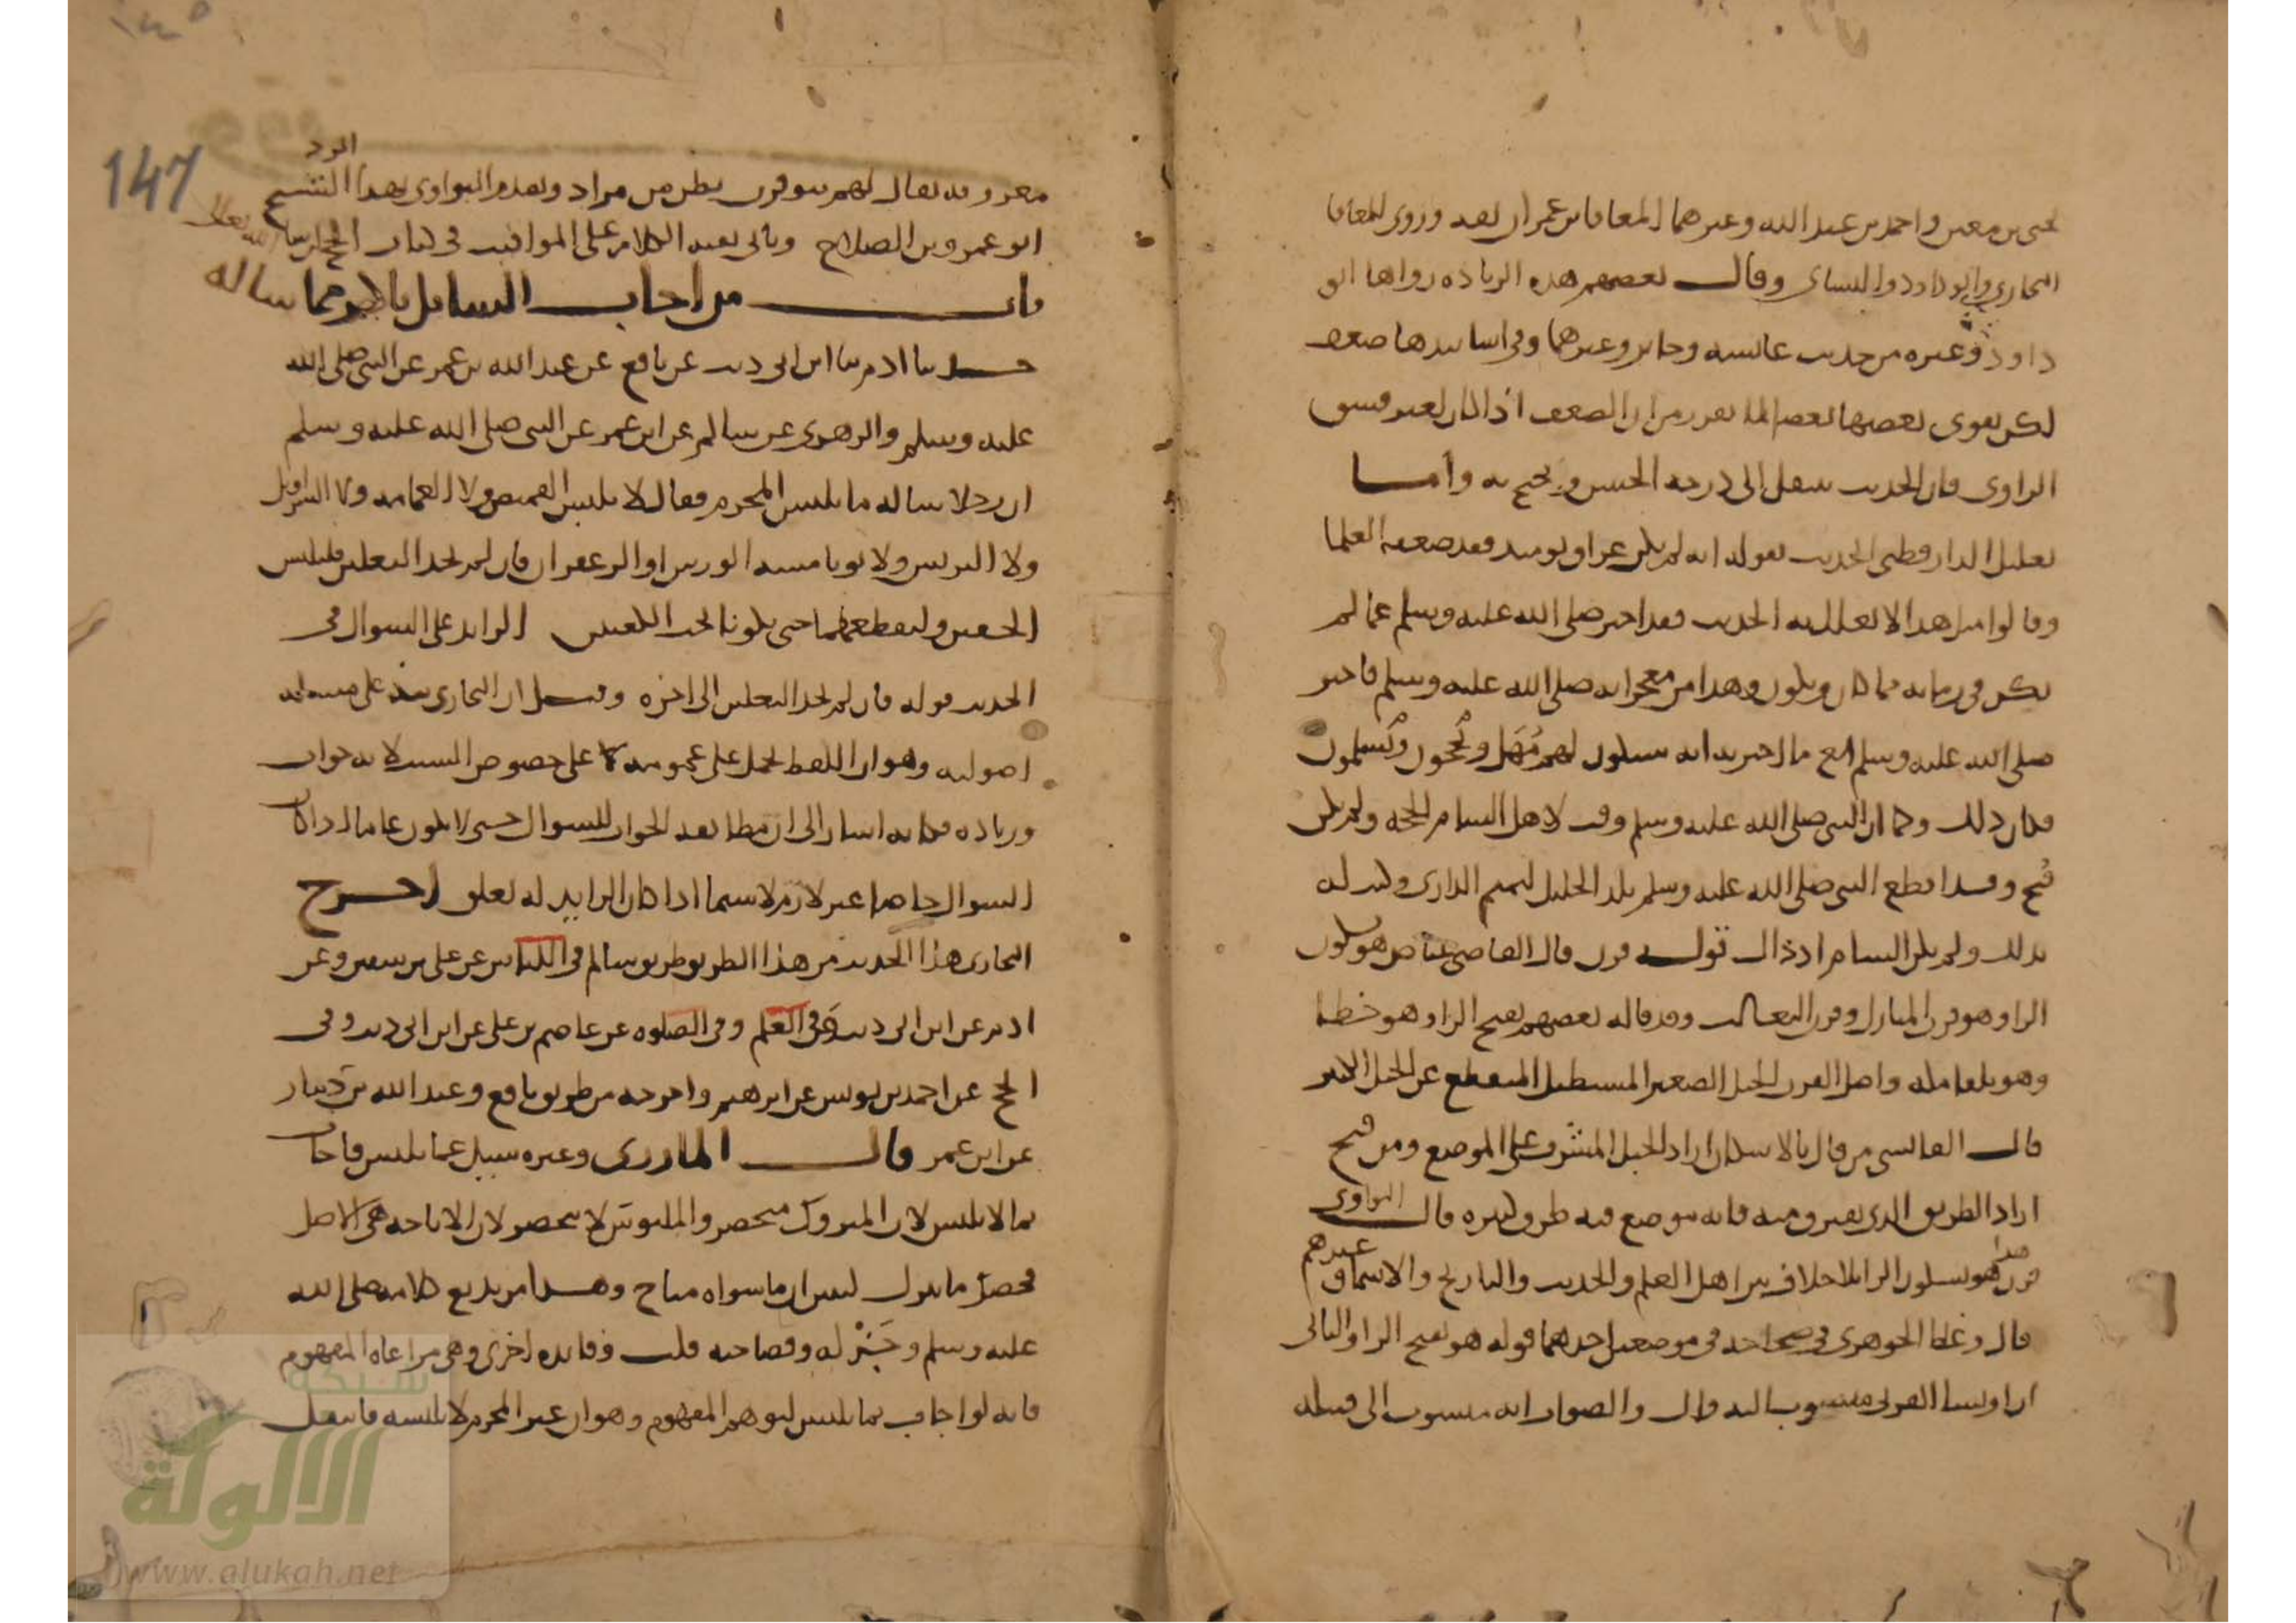 يحيى بن معين واحمد بن عبد الله وغيرهما المعافا بن عمران ثقه وروى للمعافا
البخاري وابو داود والنساى وقال بعضهم هذه الزياده رواها ابو
داود وغيره من حديث عائشه وجابر وغيرهما وفي اسانيدها ضعف
لكن يقوى بعضها بعضا لما تقرر من ان الضعف اذا كان لغير فسق
الراوي فان الحديث ينتقل الى درجه الحسن ويحتج به واما
تعليل الدارقطني الحديث بقوله انه لم يكن عراق يوميذ فقد ضعفه العلما
وقالوا مثل هذا لا يعلل به الحديث فقد اخبر صلى الله عليه وسلم عما لم
يكن في زمانه مما كان ويكون وهذا من معجزاته صلى الله عليه وسلم فاخبر
صلى الله عليه وسلم مع ما اخبر به انه سيكون لهم مُهَل ويحجون ويُسلمون
فكان ذلك وكما ان النبي صلى الله عليه وسلم وقت لاهل الشام الجحفه ولم يكن
فتح وقد اقطع النبي صلى الله عليه وسلم بلد الخليل لتميم الداري وكتب له
بذلك ولم يكن الشام اذ ذاك قوله قرن قال القاضي عياض هو بسكون
الراو هو قرن المنازل وقرن الثعالب وقد قاله بعضهم بفتح الرا وهو خطا
وهو تلقا مكه واصل القرن الجبل الصغير المستطيل المنقطع عن الجبل الكبير
قال القابسي من قال بالاسكان اراد الجبل المشرف على الموضع ومن فتح
اراد الطريق الذي يفترق منه فانه موضع فيه طرق كثيره قال النواوي
قرن هو بسكون الرا بلا خلاف بين اهل العلم والحديث والتاريخ والاسما وغيرهم
قال وغلط الجوهري في صحاحه في موضعين احدهما قوله هو بفتح الرا والثاني
ان اويسا القرني منسوب اليه قال والصواب انه منسوب الى قبيله
147
معروفه يقال لهم بنو قرن بطن من مراد وتقدم النواوي بهذا الرد الشيخ
ابو عمرو بن الصلاح وياتي بقيه الكلام على المواقيت في كتاب الحج ان شا الله تعالى
باب من اجاب السايل باكثر مما ساله
حدثنا ادم ثنا ابن ابي ذيب عن نافع عن عبد الله بن عمر عن النبي صلى الله
عليه وسلم والزهري عن سالم عن ابن عمر عن النبي صلى الله عليه وسلم
ان رجلا ساله ما يلبس المحرم فقال لا يلبس القميص ولا العمامه ولا السراويل
ولا البرنس ولا ثوبا مسه الورس او الزعفران فان لم يجد النعلين فليلبس
الخفين وليقطعهما حتى يكونا تحت الكعبين الزايد على السوال في
الحديث قوله فان لم يجد النعلين الى اخره وقيل ان البخاري نبه على مساله
اصوليه وهو ان اللفظ يحمل على عمومه لا على خصوص السبب لانه جواب
وزياده فكانه اشار الى ان مطابقه الجواب للسوال حتى لا يكون عاما اذا كان
السوال خاصا غير لازم لا سيما اذا كان الزايد له تعلق اخرج
البخاري هذا الحديث من هذا الطريق طريق سالم في اللباس عن علي بن سفين وعن
ادم عن ابن ابي ذيب وفي العلم وفي الصلوه عن عاصم بن علي عن ابن ابي ذيب وفي
الحج عن احمد بن يونس عن ابرهيم واخرجه من طريق نافع وعبد الله بن دينار
عن ابن عمر قال المازري وغيره سيل عما يلبس فاجاب
بما لا يلبس لان المتروك منحصر والملبوس لا ينحصر لان الاباحه هي الاصل
فحصر ما يترك ليبين ان ما سواه مباح وهذا من بديع كلامه صلى الله
عليه وسلم وجَزْله وفصاحته قلت وفايده اخرى وهي مراعاه المفهوم
فانه لو اجاب بما يلبس لتوهم المفهوم وهو ان غير المحرم لا يلبسه فانتقل
شبكة
الالوكة
www.alukah.net